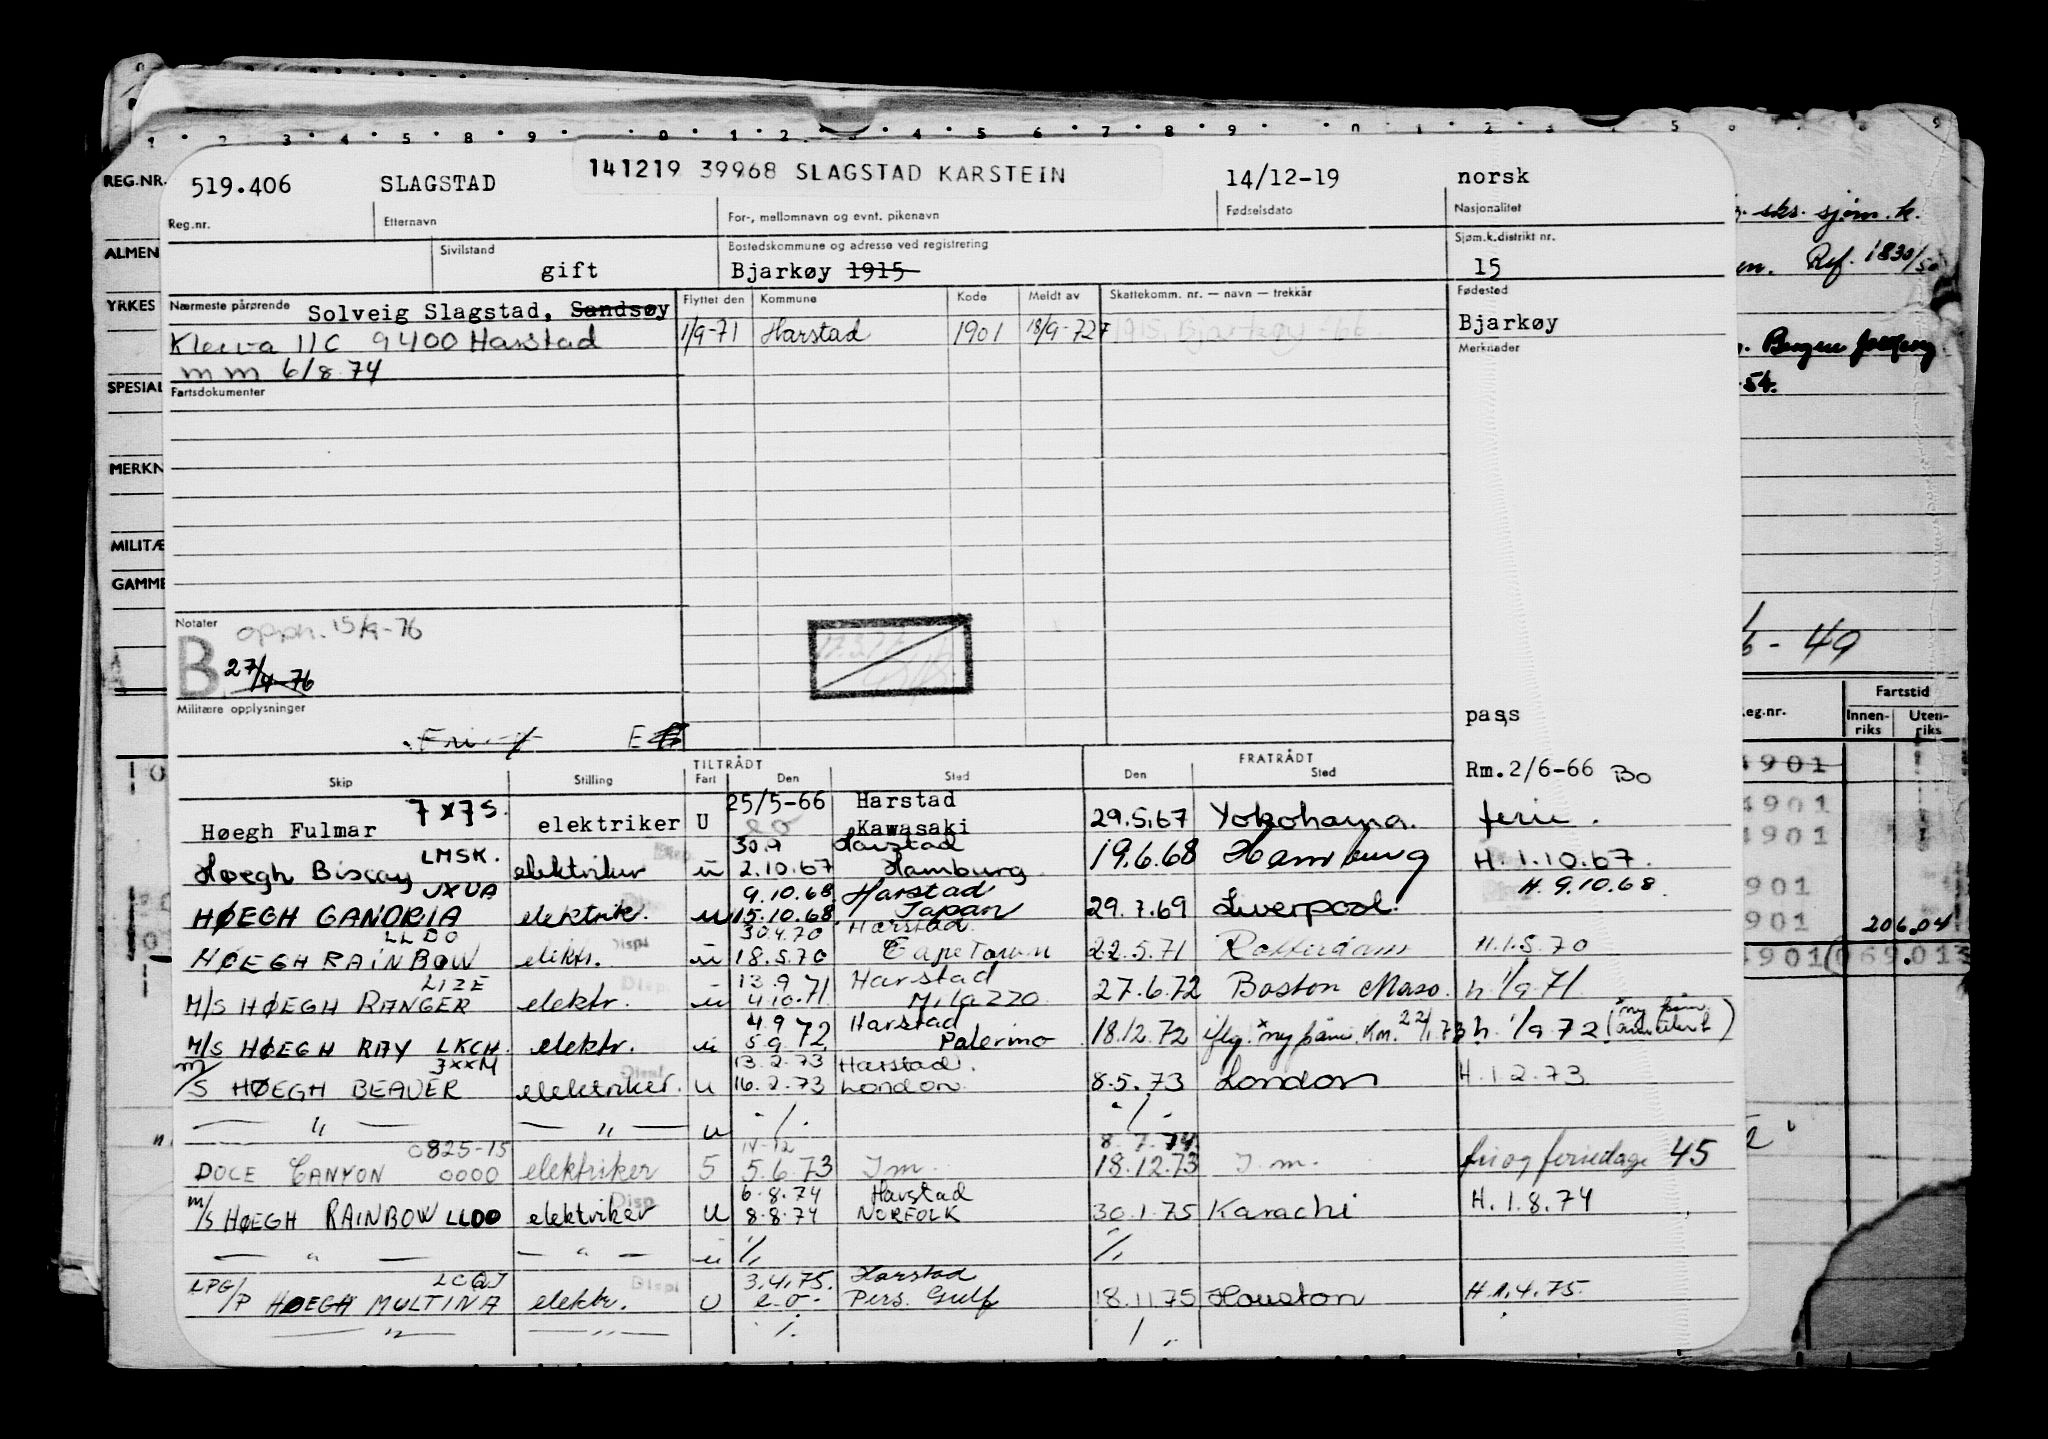 519.406 SLAGSTAD 141219 39968 SLAGSTAD KARSTEIN 14/12-19 norsk
Reg.nr. Etternavn For-, mellomnavn og evnt. pikenavn Fødselsdato Nasjonalitet
Sivilstand Bostedskommune og adresse ved registrering Sjøm.k.distrikt nr.
gift Bjarkøy 1915 15
Nærmeste pårørende Solveig Slagstad, Sandsøy Flyttet den Kommune Kode Meldt av Skattekomm. nr. — navn — trekkår Fødested
Kleiva 11C 9400 Harstad 1/9-71 Harstad 1901 18/9-72 1915, Bjarkøy -66 Bjarkøy
mm 6/8.74 Merknader
Fartsdokumenter
Notater
opph. 15/9-76
B 27/9-76
Militære opplysninger
pass
Fri
TILTRÅDT FRATRÅDT
Skip Stilling Fart Den Sted Den Sted Rm.2/6-66 Bo
7x7S. 25/5-66 Harstad
Høegh Fulmar elektriker U Kawasaki 29.5.67 Yokohama. ferie.
LMSK. 30.9 Harstad
Høegh Biscay elektriker u 2.10.67 Hamburg 19.6.68 Hamburg H.1.10.67.
JXUA 9.10.68 Harstad H. 9.10.68.
HØEGH GANDRIA elektrik. u 15.10.68 Japan 29.7.69 Liverpool
LLDO 30.4.70 Harstad
HØEGH RAINBOW elektr. u 18.5.70 Cape Town 22.5.71 Rotterdam H.1.5.70
LIZE 13.9.71 Harstad
M/S HØEGH RANGER elektr. u 4.10.71 Milazzo 27.6.72 Boston Mass. h. 1/9.71
4.9.72 Harstad
M/S HØEGH RAY LKCH. elektr. u 5.9.72 Palermo 18.12.72 h. 1/9.72
3XXM 13.2.73 Harstad.
M/S HØEGH BEAVER elektriker. u 16.2.73 London 8.5.73 London H.1.2.73
— " — — " — u ./. ./.
0825-15 14-12 8.7.74
DOCE CANYON 0000 elektriker 5 5.6.73 I m. 18.12.73 I.m. fri og feriedage 45
6.8.74 Harstad
M/S HØEGH RAINBOW LLDO elektriker U 8.8.74 NORFOLK 30.1.75 Karachi H.1.8.74
— " — — " — u ./. ./.
LCQJ 3.4.75. Harstad
LPG/P HØEGH MULTINA elektr. U e.o. Pers. Gulf 18.11.75 Houston H.1.4.75.
— " — — " — ./.
REG.NR.
ALMEN
YRKES
SPESIAL
MERKN
MILITÆ
GAMME
sks. sjøm. k.
Ref. 1830/50
-54.
- 49
Fartstid
eg.nr. Innen-riks Uten-riks
4901
4901
4901
901
901 206.04
4901 069.013